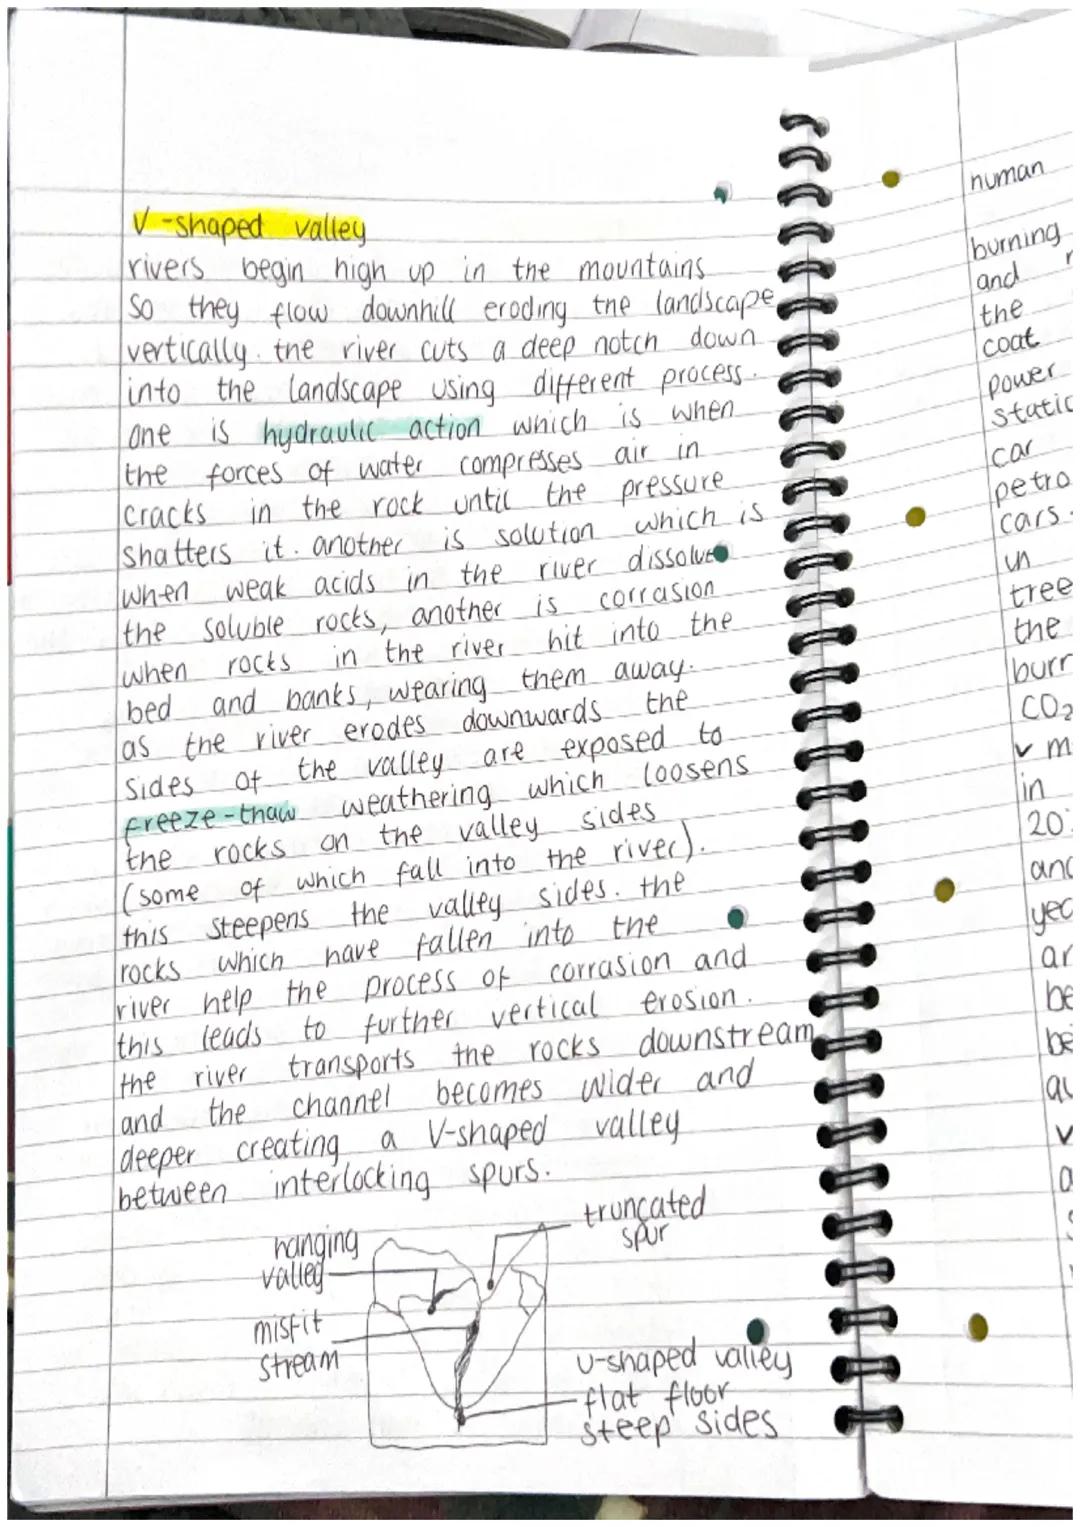 V-shaped valley
rivers begin high up in the mountains
so they flow downhill eroding the landscape
vertically. the river cuts a deep notch down
into the landscape using different process.
one is hydraulic action which is when
the forces of water compresses air in
cracks in the rock until the pressure
shatters it. another is solution which is
when weak acids in the river dissolve
the soluble rocks, another is corrasion
when rocks in the river hit into the
bed and banks, wearing them away.
as the river erodes downwards the
sides of the valley are exposed to
freeze-thaw weathering which loosens
the rocks on the valley sides
(some of which fall into the river).
this steepens the valley sides. the
rocks which have fallen into the
river help the process of corrasion and
this leads to further vertical erosion.
the river transports the rocks downstream
and the channel becomes wider and
deeper creating a V-shaped valley
between interlocking spurs.
hanging
valley
misfit
stream
truncated
spur
U-shaped valley
flat floor
steep sides
human
burning
and
the
coat
power
static
car
petro
cars.
in
tree
the
burr
CO₂
✓ m
in
20
and
yea
ar
be
be
au